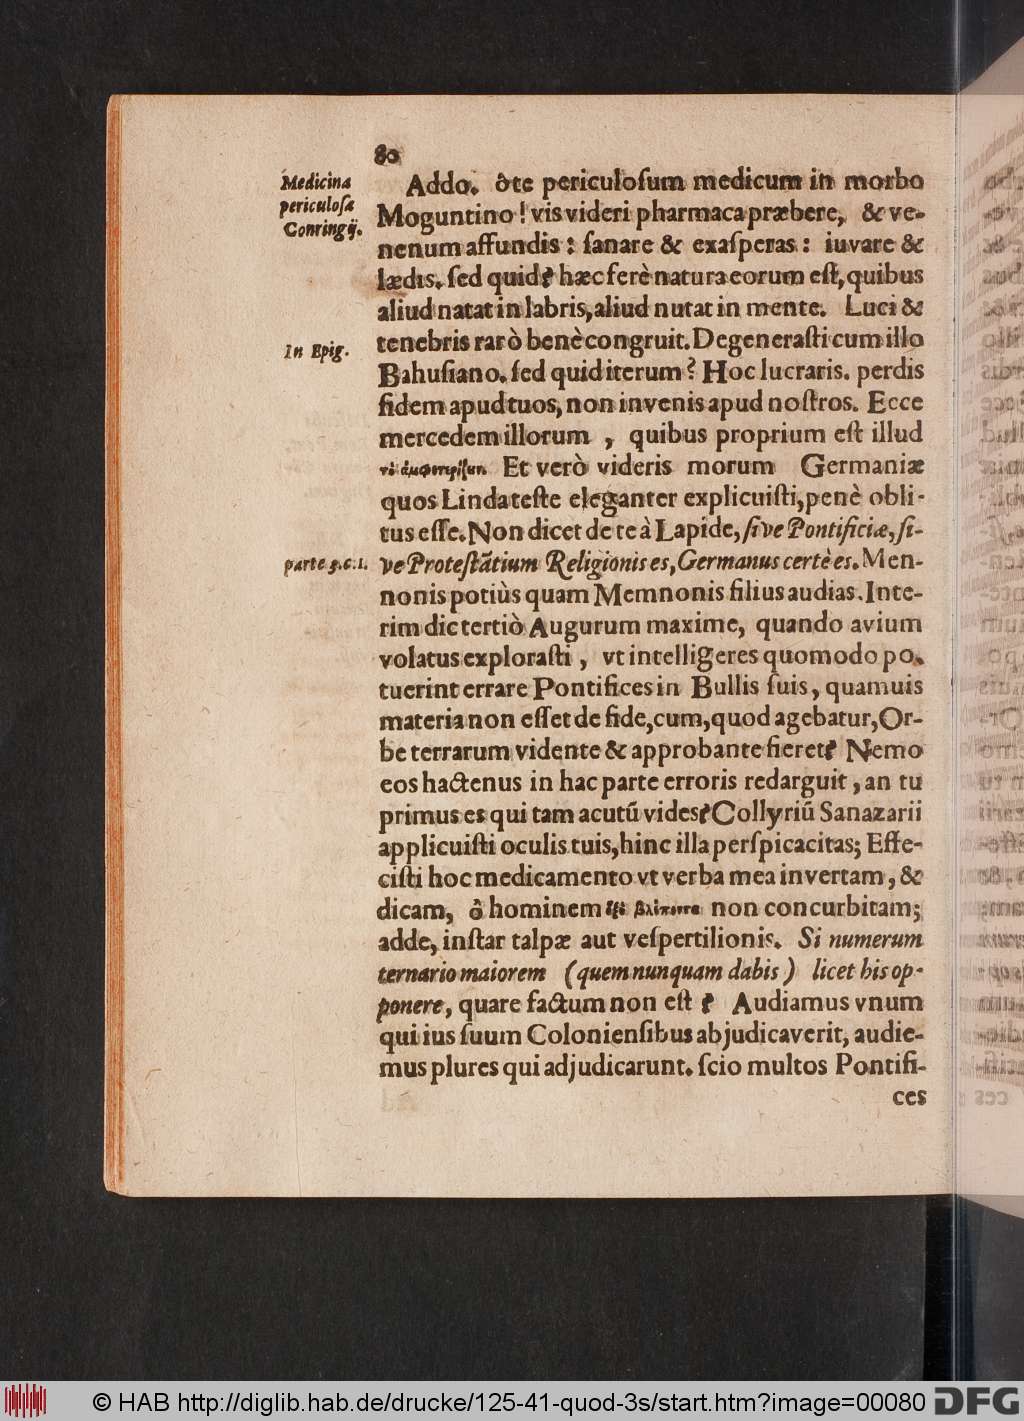 80
Medicina
periculosæ
Conringij.
Addo. ôte periculoſum medicum in morbo
Moguntino! vis videri pharmaca præbere, & ve-
nenum affundis: ſanare & exaſperas: iuvare &
lædis. ſed quid? hæc ferè natura eorum eſt, quibus
aliud natat in labris, aliud nutat in mente. Luci &
tenebris rarò benè congruit. Degeneraſti cum illo
In Epig.
Bahuſiano. ſed quid iterum? Hoc lucraris. perdis
fidem apud tuos, non invenis apud noſtros. Ecce
mercedem illorum, quibus proprium eſt illud
Et verò videris morum Germaniæ
quos Linda teſte eleganter explicuiſti, penè obli-
tus eſſe. Non dicet de te à Lapide, ſive Pontificiæ, ſi-
parte g.C.I.
ve Proteſtātium Religionis es, Germanus certè es. Men-
nonis potiùs quam Memnonis filius audias. Inte-
rim dic tertiò Augurum maxime, quando avium
volatus exploraſti, vt intelligeres quomodo po.
tuerint errare Pontifices in Bullis ſuis, quamuis
materia non eſſet de fide, cum, quod agebatur, Or-
be terrarum vidente & approbante fieret? Nemo
eos hactenus in hac parte erroris redarguit, an tu
primus es qui tam acutū vides? Collyriū Sanazarii
applicuiſti oculis tuis, hinc illa perſpicacitas; Effe-
ciſti hoc medicamento vt verba mea invertam, &
dicam, ô hominem ὀξὺ βλέποντα non concurbitam;
adde, inſtar talpæ aut veſpertilionis. Si numerum
ternario maiorem (quem nunquam dabis) licet his op-
ponere, quare factum non eſt? Audiamus vnum
qui ius ſuum Colonienſibus abjudicaverit, audie-
mus plures qui adjudicarunt. ſcio multos Pontifi-
ces
© HAB http://diglib.hab.de/drucke/125-41-quod-3s/start.htm?image=00080
DFG